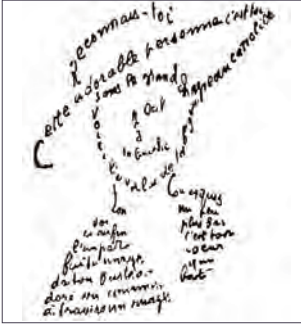 Reconnais-toi
Cette adorable personne c'est toi
Sous le grand chapeau canotier
Œil
Nez
La bouche
Voici l'ovale de ta figure
Ton
Cou exquis
Voi
ci enfin
l'impar
faite image
de ton buste a
doré vu comme
à travers un nuage
un peu
plus bas
c'est ton
cœur
qui
bat